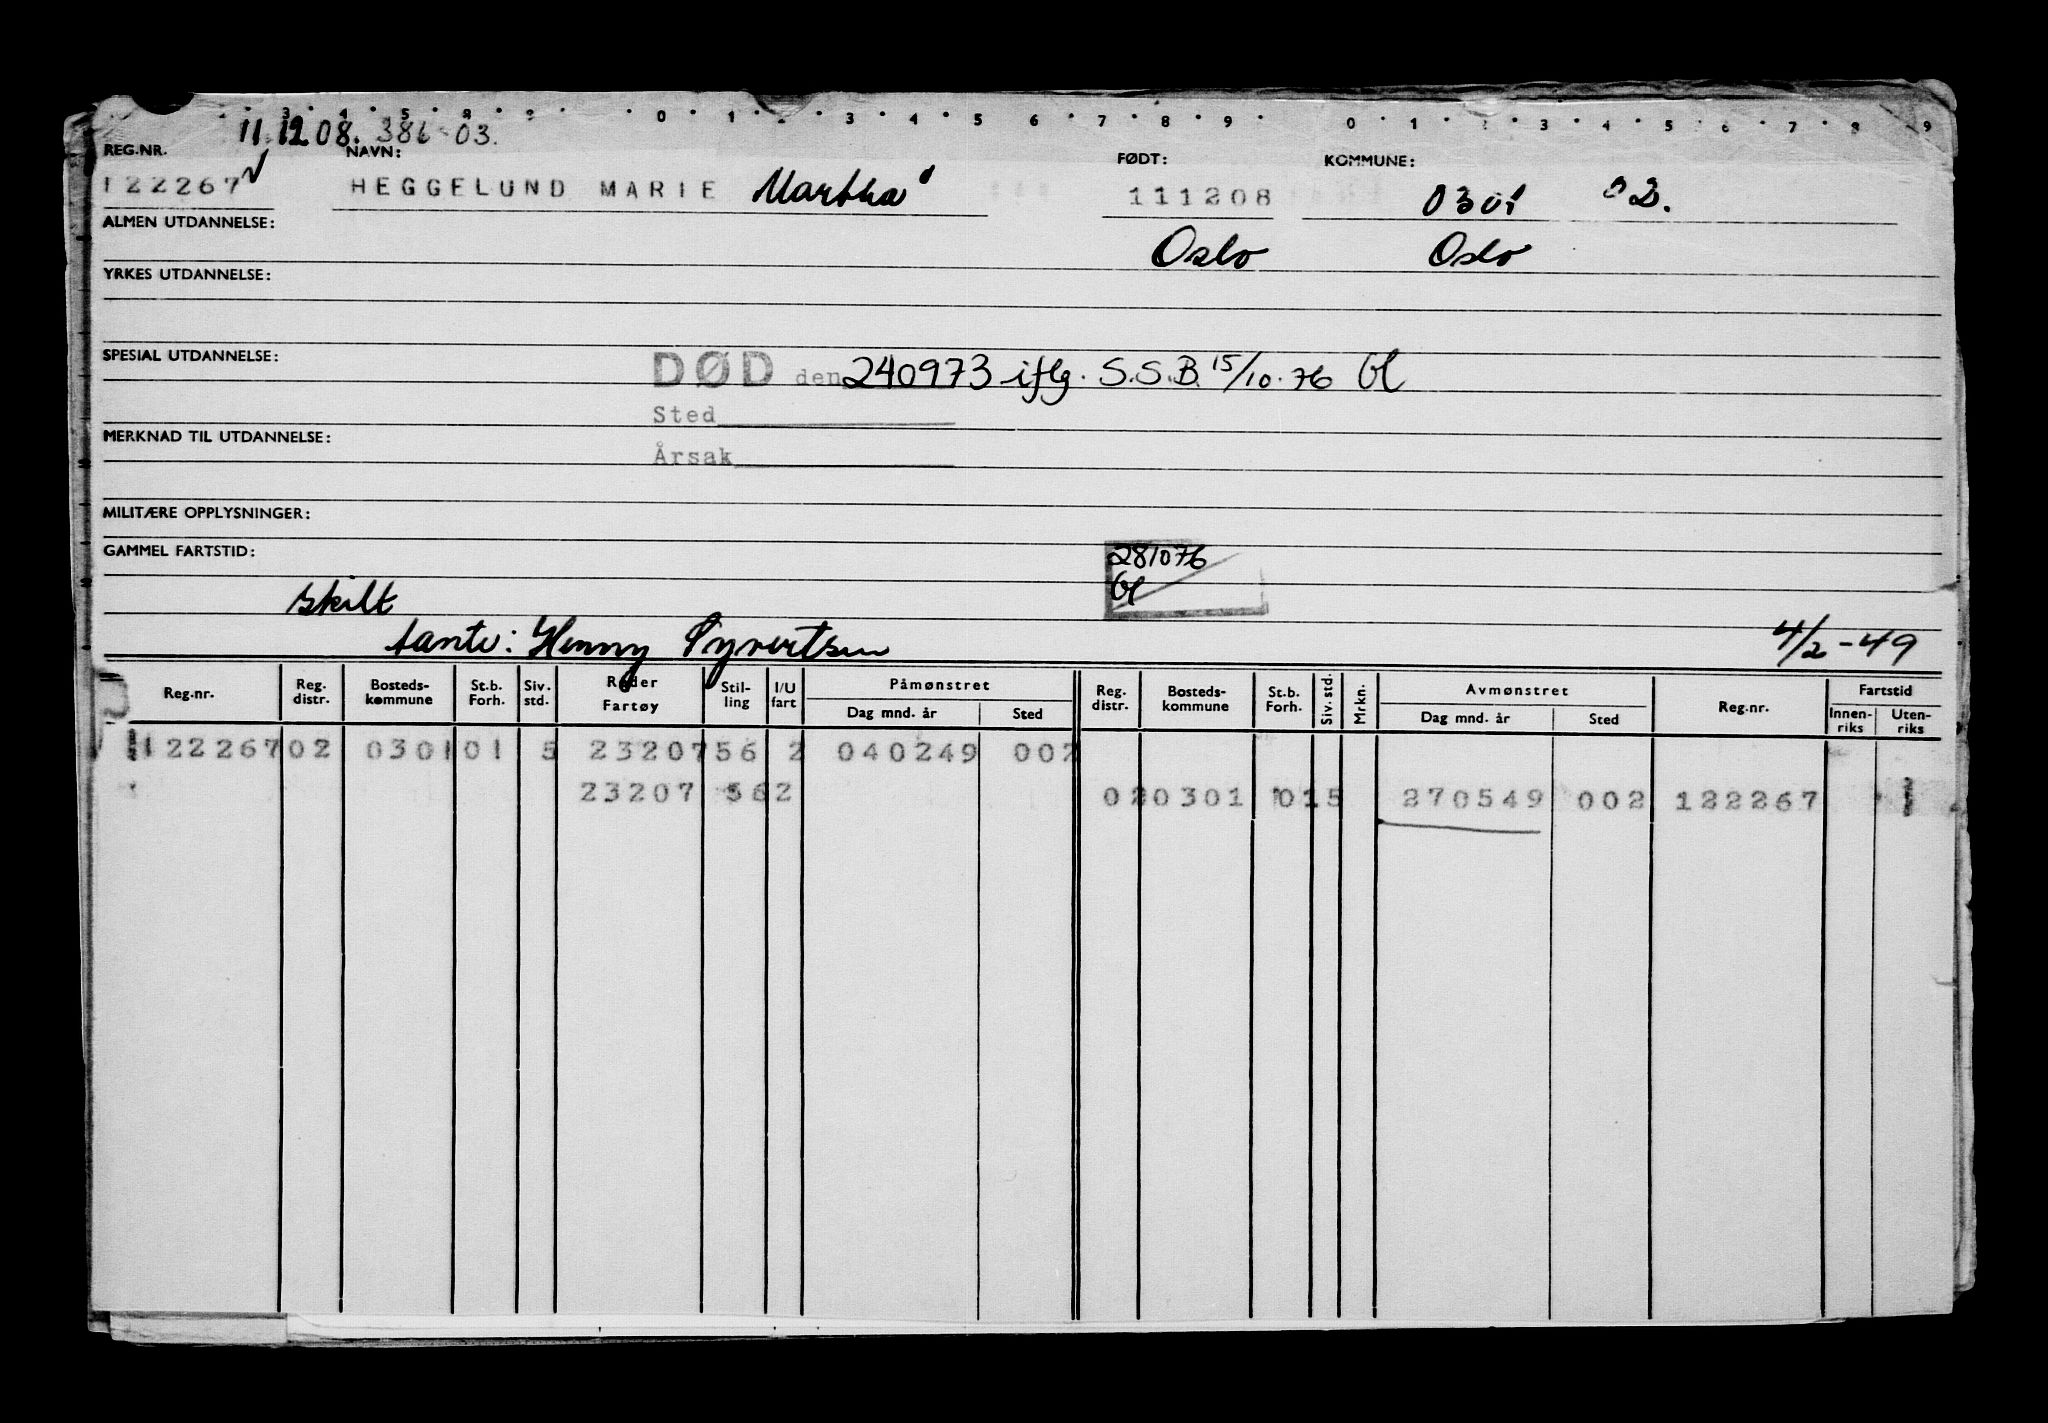 3 4 5 8 9 0 1 2 3 4 5 6 7 8 9 0 1 2 3 4 5 6 7 8 9
11.12.08. 38603.
REG.NR. NAVN: FØDT: KOMMUNE:
122267 HEGGELUND MARIE Martha 111208 0301 02.
ALMEN UTDANNELSE: Oslo Oslo
YRKES UTDANNELSE:
SPESIAL UTDANNELSE: DØD den 240973 iflg. S.S.B. 15/10.76
Sted
MERKNAD TIL UTDANNELSE:
Årsak
MILITÆRE OPPLYSNINGER:
GAMMEL FARTSTID: 281076
skilt
tante: Henny Syvertsen 4/2-49
Reg.nr. Reg. distr. Bosteds-kommune St.b. Forh. Siv. std. Reder Fartøy Stil-ling I/U fart Påmønstret Dag mnd. år Sted Reg. distr. Bosteds-kommune St.b. Forh. Siv. std. Mrkn. Avmønstret Dag mnd. år Sted Reg.nr. Fartstid Innen-riks Uten-riks
122267 02 0301 01 5 23207 56 2 040249 002
23207 56 2 02 0301 01 5 270549 002 122267